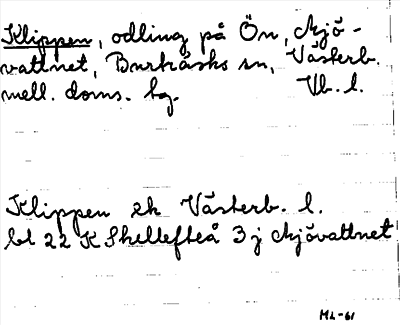 Klippen, odling på Ön, Mjö-
vattnet, Burträsks sn, Västerb.
mell. doms. hg. Vb. l.
Klippen ek Västerb. l.
bl 22 K Skellefteå 3 j Mjövattnet
ML-61